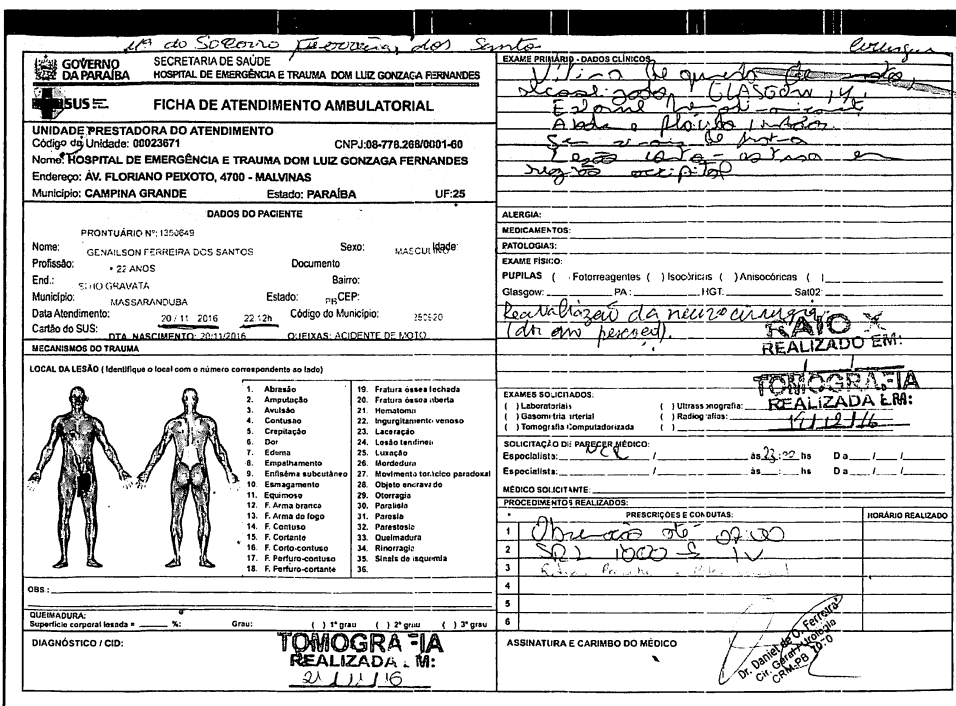 Mª do Socorro Ferreira dos Santo
Cirurgia
GOVERNO DA PARAÍBA
SECRETARIA DE SAÚDE
HOSPITAL DE EMERGÊNCIA E TRAUMA DOM LUIZ GONZAGA FERNANDES
SUS
FICHA DE ATENDIMENTO AMBULATORIAL
UNIDADE PRESTADORA DO ATENDIMENTO
Código da Unidade: 00023671 CNPJ:08-778.268/0001-60
Nome: HOSPITAL DE EMERGÊNCIA E TRAUMA DOM LUIZ GONZAGA FERNANDES
Endereço: ÁV. FLORIANO PEIXOTO, 4700 - MALVINAS
Município: CAMPINA GRANDE Estado: PARAÍBA UF:25
DADOS DO PACIENTE
PRONTUÁRIO Nº: 1350649
Nome: GENAILSON FERREIRA DOS SANTOS Sexo: MASCULINO Idade:
Profissão: 22 ANOS Documento
End.: SITIO GRAVATA Bairro:
Município: MASSARANDUBA Estado: PB CEP:
Data Atendimento: 20/11 2016 22:12h Código do Município: 250920
Cartão do SUS: DTA NASCIMENTO: 20/11/2016 QUEIXAS: ACIDENTE DE MOTO
MECANISMOS DO TRAUMA
LOCAL DA LESÃO ( Identifique o local com o número correspondente ao lado)
1. Abrasão
2. Amputação
3. Avulsão
4. Contusão
5. Crepitação
6. Dor
7. Edema
8. Empalhamento
9. Enfisema subcutâneo
10. Esmagamento
11. Equimose
12. F. Arma branca
13. F. Arma do fogo
14. F. Contuso
15. F. Cortante
16. F. Corto-contuso
17. F. Perfuro-contuso
18. F. Perfuro-cortante
19. Fratura óssea fechada
20. Fratura óssea aberta
21. Hematoma
22. Ingurgitamento venoso
23. Laceração
24. Lesão tendinea
25. Luxação
26. Mordedura
27. Movimento torácico paradoxal
28. Objeto encravado
29. Otorragia
30. Paralisia
31. Paresia
32. Parestesia
33. Queimadura
34. Rinorragia
35. Sinais de isquemia
36.
OBS :
QUEIMADURA:
Superfície corporal lesada = %: Grau: ( ) 1º grau ( ) 2º grau ( ) 3º grau
DIAGNÓSTICO / CID:
TOMOGRAFIA
REALIZADA EM:
21/11/16
EXAME PRIMÁRIO - DADOS CLÍNICOS
Vítima de queda de moto,
alcoolizado, GLASGOW 14.
Estável hemodinamicamente
Abdome flácido, indolor.
Sem sinais de fratura
Lesão corto-contusa em
região occipital
ALERGIA:
MEDICAMENTOS:
PATOLOGIAS:
EXAME FÍSICO:
PUPILAS ( ) Fotorreagentes ( ) Isocóricas ( ) Anisocóricas ( )
Glasgow: PA: HGT: Sat02:
Reavaliação da neurocirurgia
RAIO X
REALIZADO EM:
TOMOGRAFIA
REALIZADA EM:
EXAMES SOLICITADOS:
( ) Laboratoriais ( ) Ultrassonografia:
( ) Gasometria arterial ( ) Radiografias:
( ) Tomografia Computadorizada ( )
SOLICITAÇÃO DE PARECER MÉDICO:
Especialista: NCR / às 23:00 hs Dia / /
Especialista: / às : hs Dia / /
MÉDICO SOLICITANTE:
PROCEDIMENTOS REALIZADOS:
PRESCRIÇÕES E CONDUTAS: HORÁRIO REALIZADO
1 Observação até 07:00
2 SRL 1000 IV
3
4
5
6
ASSINATURA E CARIMBO DO MÉDICO
Dr. Daniel de O. Ferreira
Cir. Geral / Urologia
CRM-PB